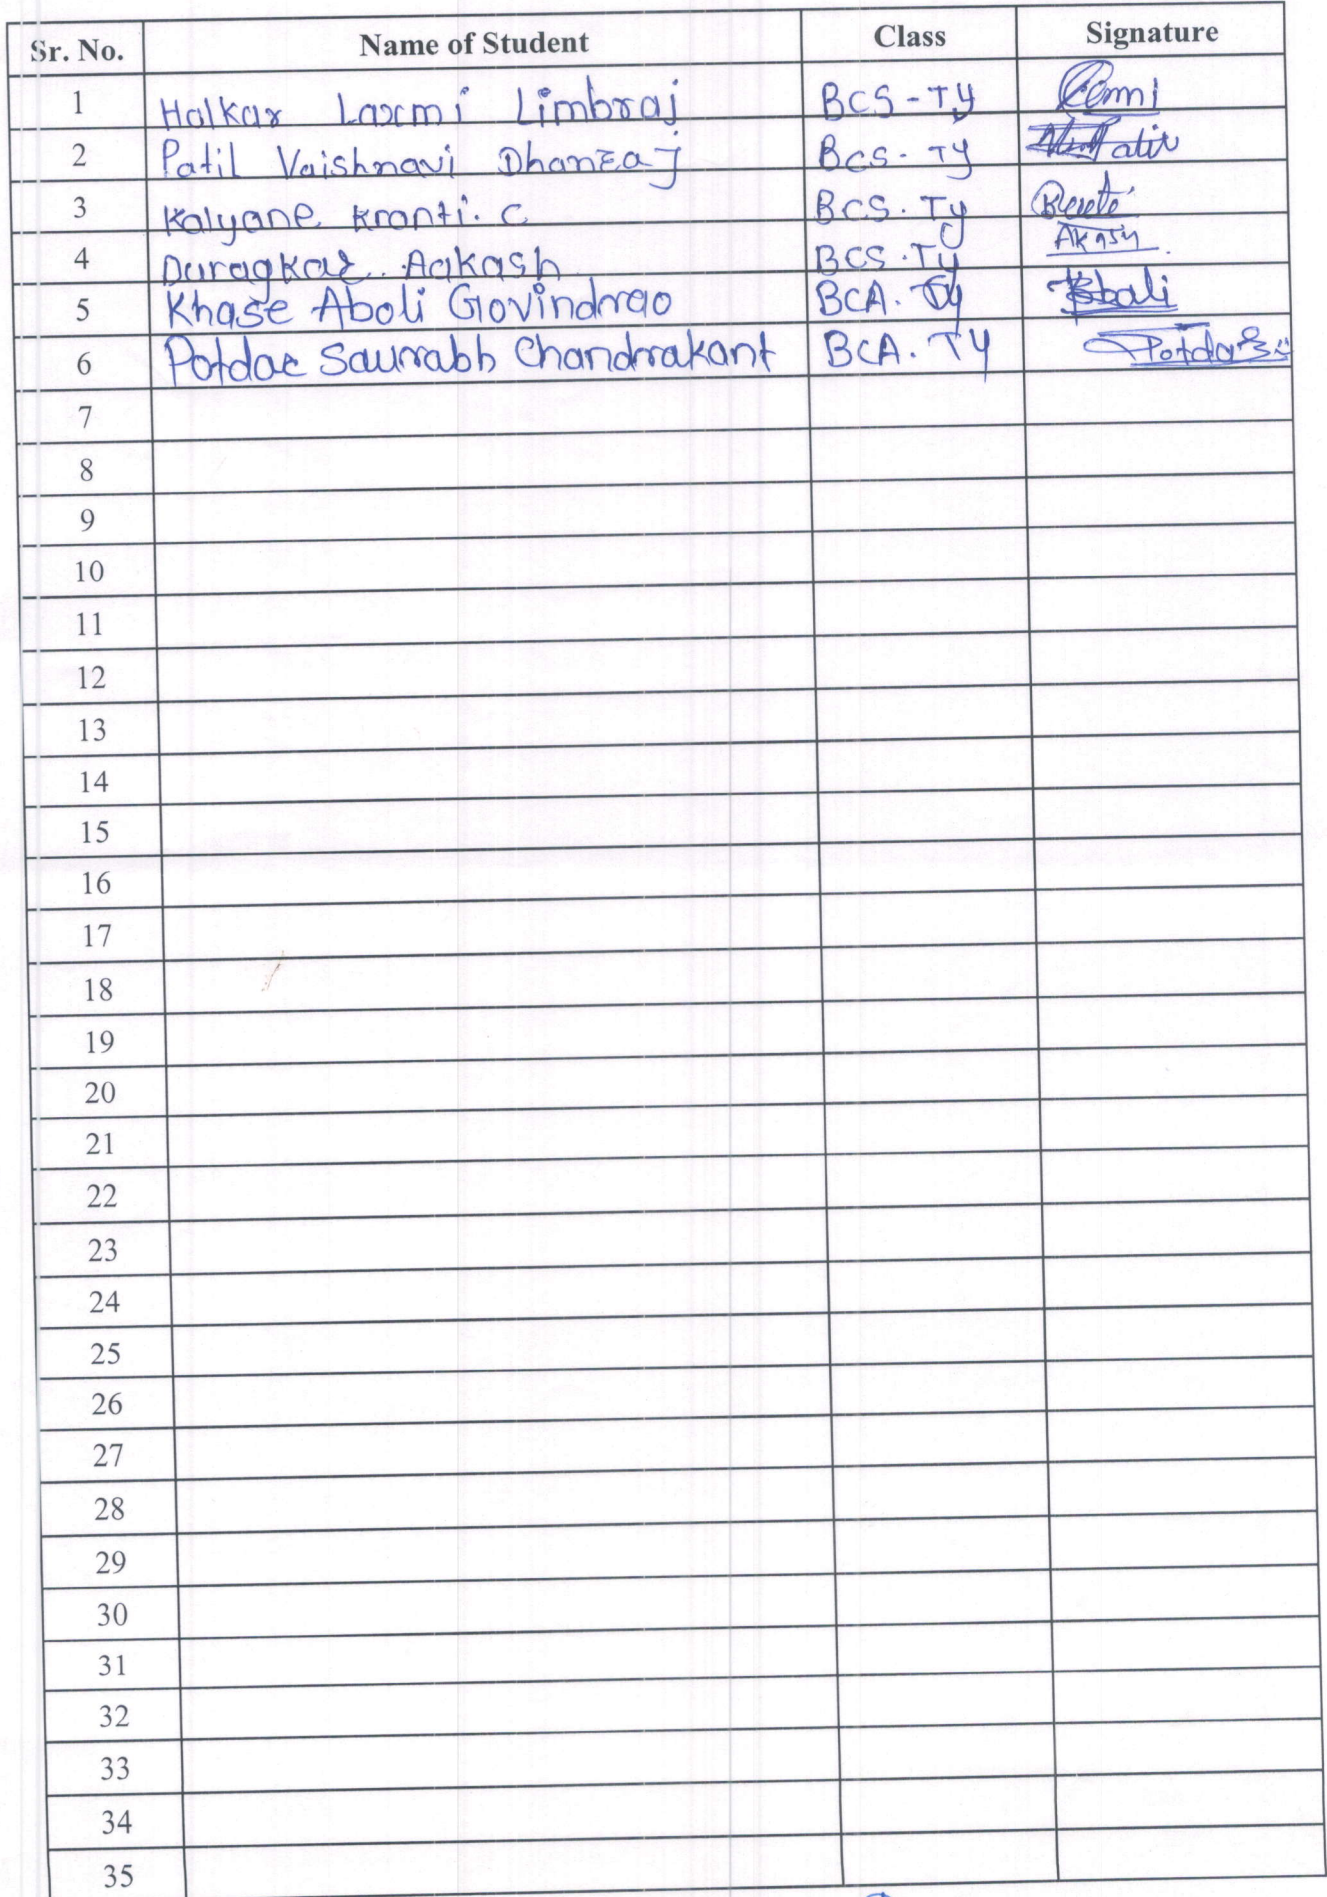 Sr. No. Name of Student Class Signature
1 Halkar Laxmi Limbraj BCS-TY
2 Patil Vaishnavi Dhanraj BCS- TY Patil
3 Kalyane Kranti. C BCS. Ty
4 Duragkar Aakash BCS.Ty AKASH
5 Khase Aboli Govindrao BCA. Ty Aboli
6 Potdar Saurabh Chandrakant BCA. TY Potdar
7
8
9
10
11
12
13
14
15
16
17
18
19
20
21
22
23
24
25
26
27
28
29
30
31
32
33
34
35